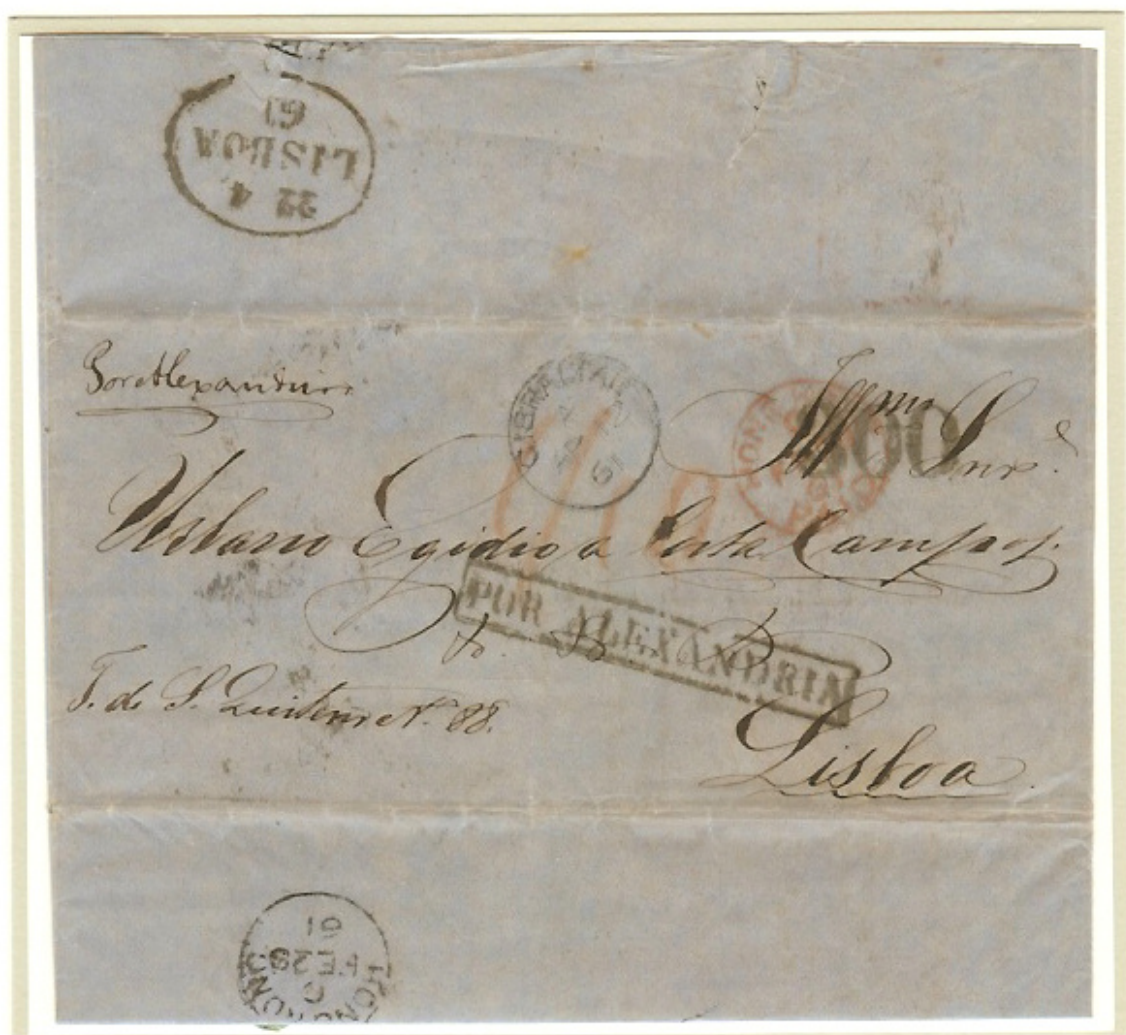 61
LISBOA
22 4
Por Alexandria
GIBRALTAR
A
AP
61
HONG
PAID
300
Illmo Snr.
Urbano Egidio a Costa Campos.
POR ALEXANDRIA
T. de S. Quiteria No. 88.
Lisboa
HONG KONG
C
FE 28
61